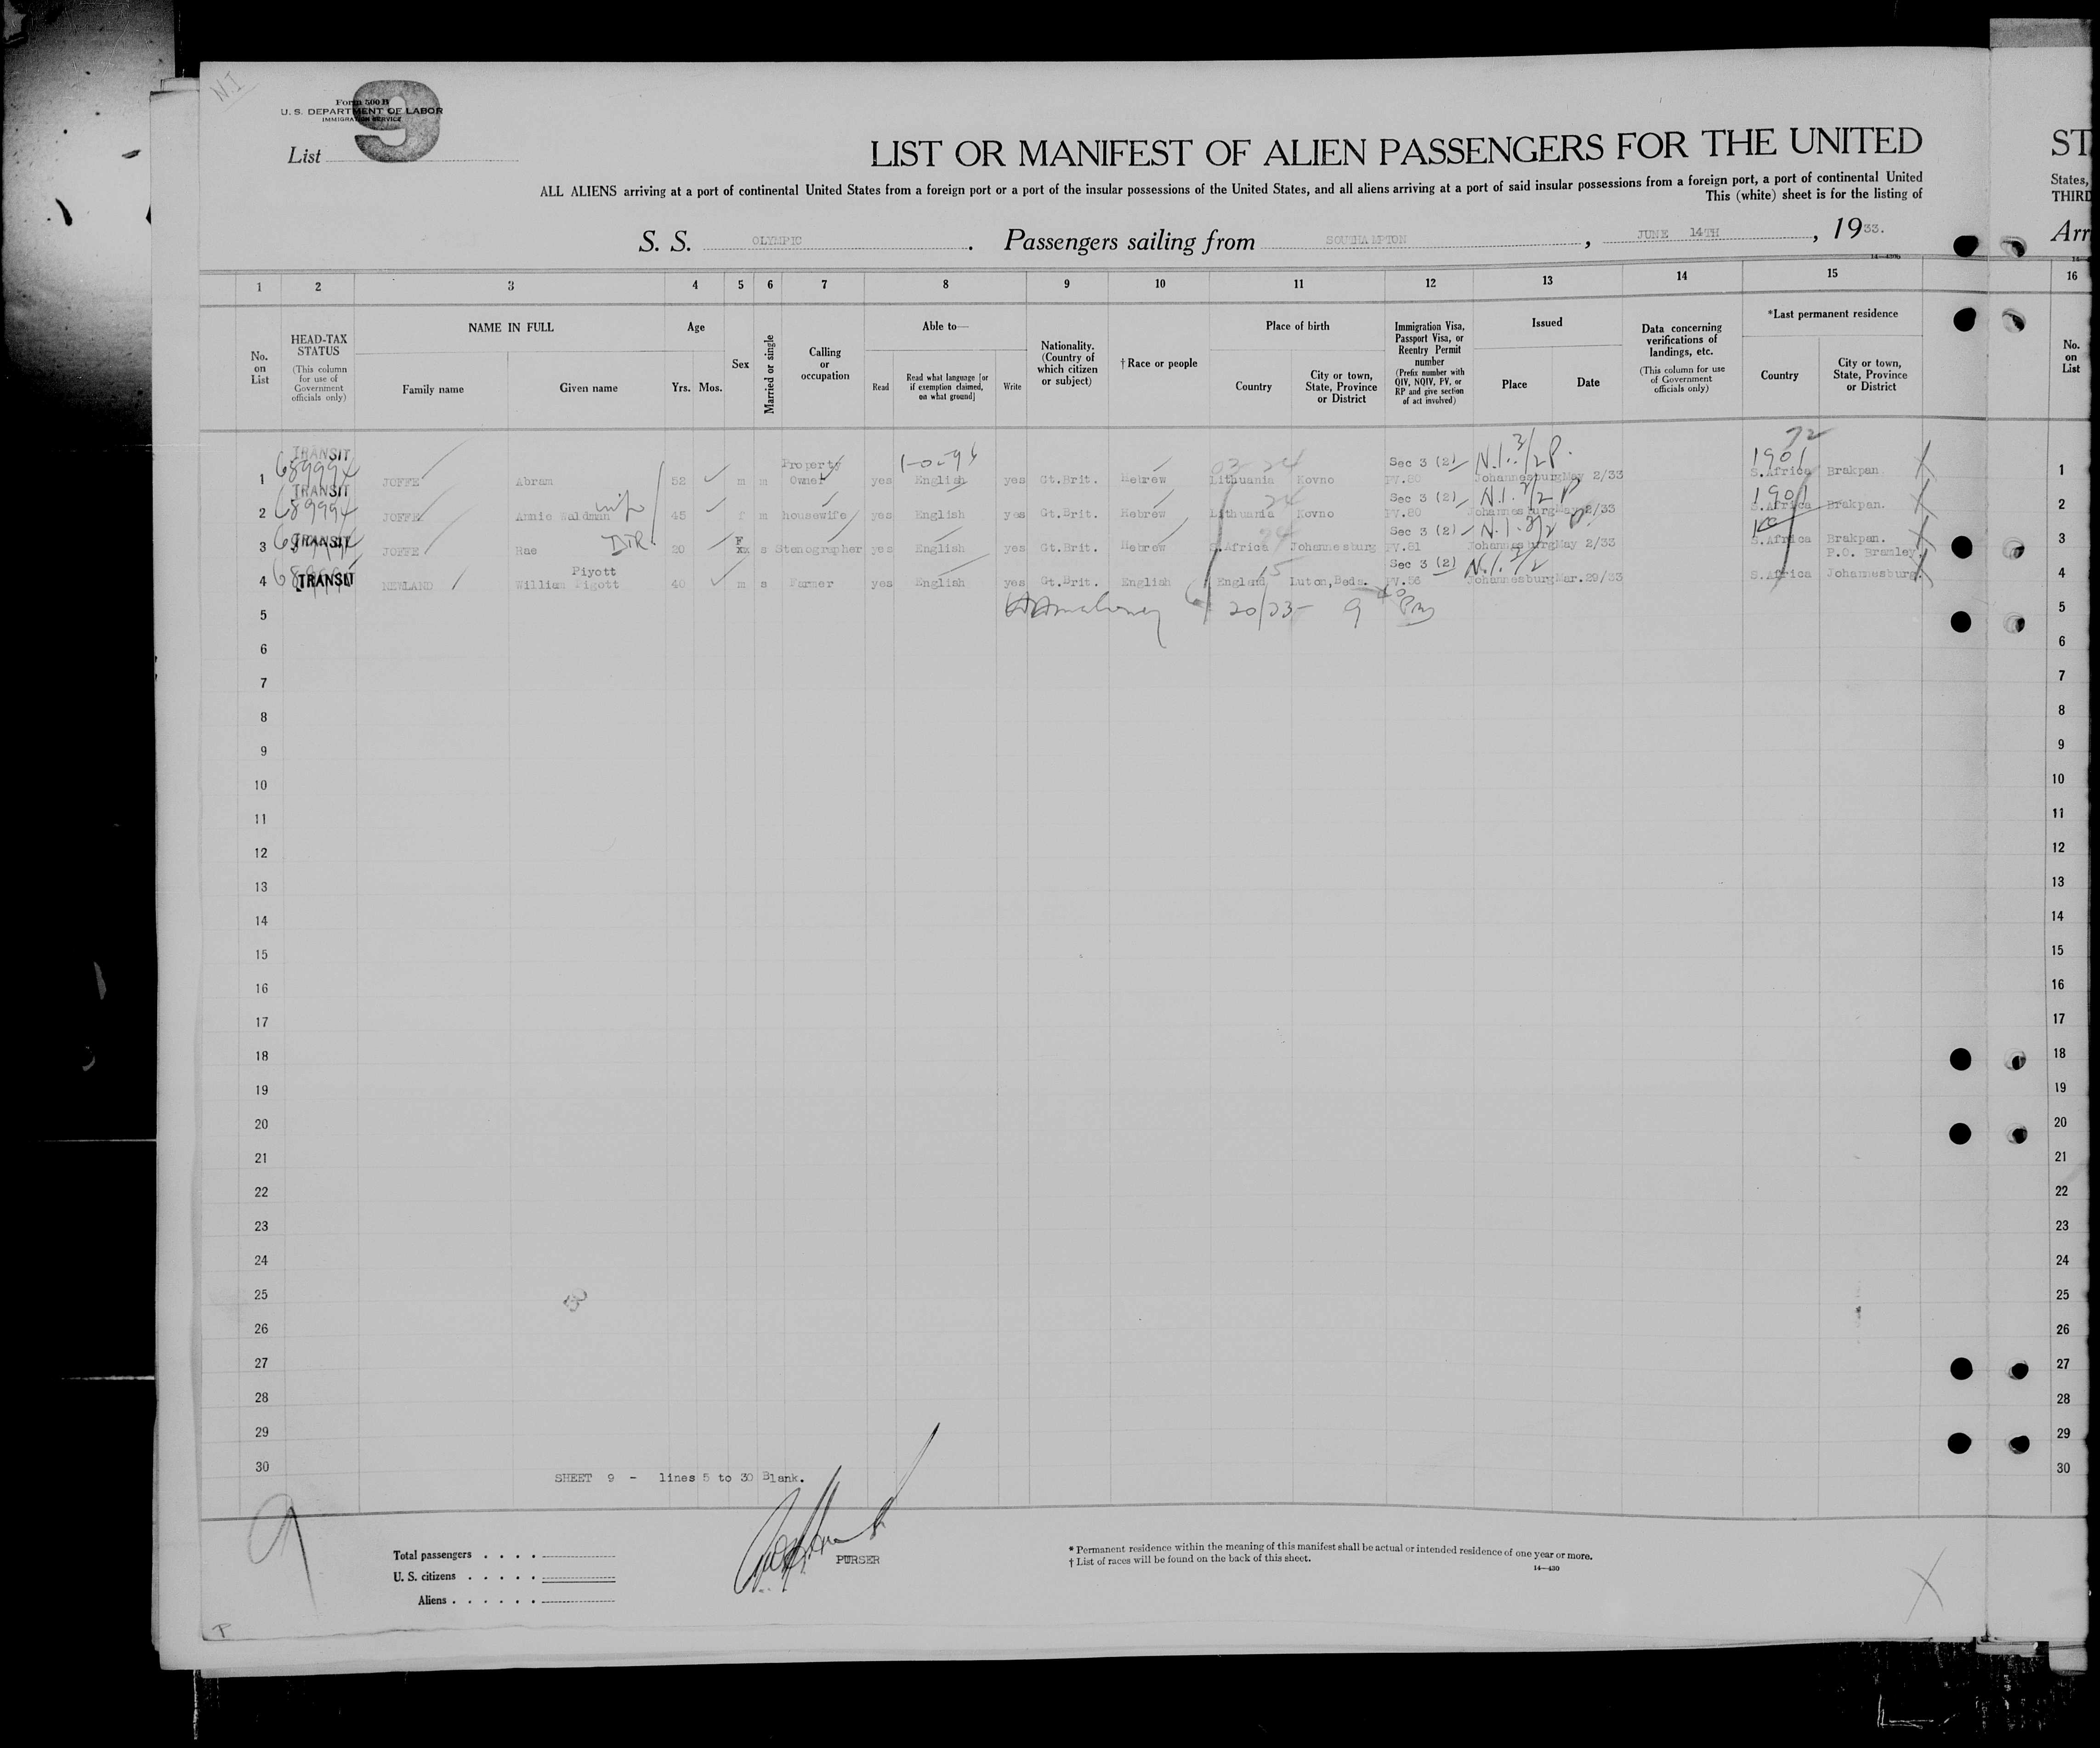 N.I
Form 500 B
U. S. DEPARTMENT OF LABOR
IMMIGRATION SERVICE
9
List
LIST OR MANIFEST OF ALIEN PASSENGERS FOR THE UNITED
ST
ALL ALIENS arriving at a port of continental United States from a foreign port or a port of the insular possessions of the United States, and all aliens arriving at a port of said insular possessions from a foreign port, a port of continental United
States,
This (white) sheet is for the listing of
THIRD
S. S. OLYMPIC. Passengers sailing from SOUTHAMPTON, JUNE 14TH, 1933.
Arr
1 2 3 4 5 6 7 8 9 10 11 12 13 14 15 16
No. on List
HEAD-TAX STATUS (This column for use of Government officials only)
NAME IN FULL
Family name Given name
Age
Yrs. Mos.
Sex
Married or single
Calling or occupation
Able to—
Read Read what language [or if exemption claimed, on what ground] Write
Nationality. (Country of which citizen or subject)
† Race or people
Place of birth
Country City or town, State, Province or District
Immigration Visa, Passport Visa, or Reentry Permit number (Prefix number with QIV, NQIV, PV, or RP and give section of act involved)
Issued
Place Date
Data concerning verifications of landings, etc. (This column for use of Government officials only)
*Last permanent residence
Country City or town, State, Province or District
No. on List
TRANSIT Property 1-0-94 Sec 3 (2) N.I. 3/2 P. 1901
1 689994 JOFFE Abram 52 m m Owner yes English yes Gt.Brit. Hebrew Lithuania Kovno PV.80 Johannesburg May 2/33 S.Africa Brakpan 1
TRANSIT Sec 3 (2) N.I. 3/2 P 1901
2 689994 JOFFE Annie Waldman wife 45 f m housewife yes English yes Gt.Brit. Hebrew Lithuania Kovno PV.80 Johannesburg May 2/33 S.Africa Brakpan. 2
TRANSIT Sec 3 (2) N.I. 3/2 P
3 JOFFE Rae DTR. 20 F s Stenographer yes English yes Gt.Brit. Hebrew S.Africa Johannesburg PV.81 Johannesburg May 2/33 S.Africa Brakpan. 3
Piyott Sec 3 (2) N.I. 3/2 P.O. Bramley
4 TRANSIT NEWLAND William Pigott 40 m s Farmer yes English yes Gt.Brit. English England Luton, Beds. PV.56 Johannesburg Mar.29/33 S.Africa Johannesburg. 4
5 20/23- 9 5
6 6
7 7
8 8
9 9
10 10
11 11
12 12
13 13
14 14
15 15
16 16
17 17
18 18
19 19
20 20
21 21
22 22
23 23
24 24
25 25
26 26
27 27
28 28
29 29
30 30
SHEET 9 - lines 5 to 30 Blank.
9
PURSER
Total passengers
U. S. citizens
Aliens
* Permanent residence within the meaning of this manifest shall be actual or intended residence of one year or more.
† List of races will be found on the back of this sheet.
14—430
P